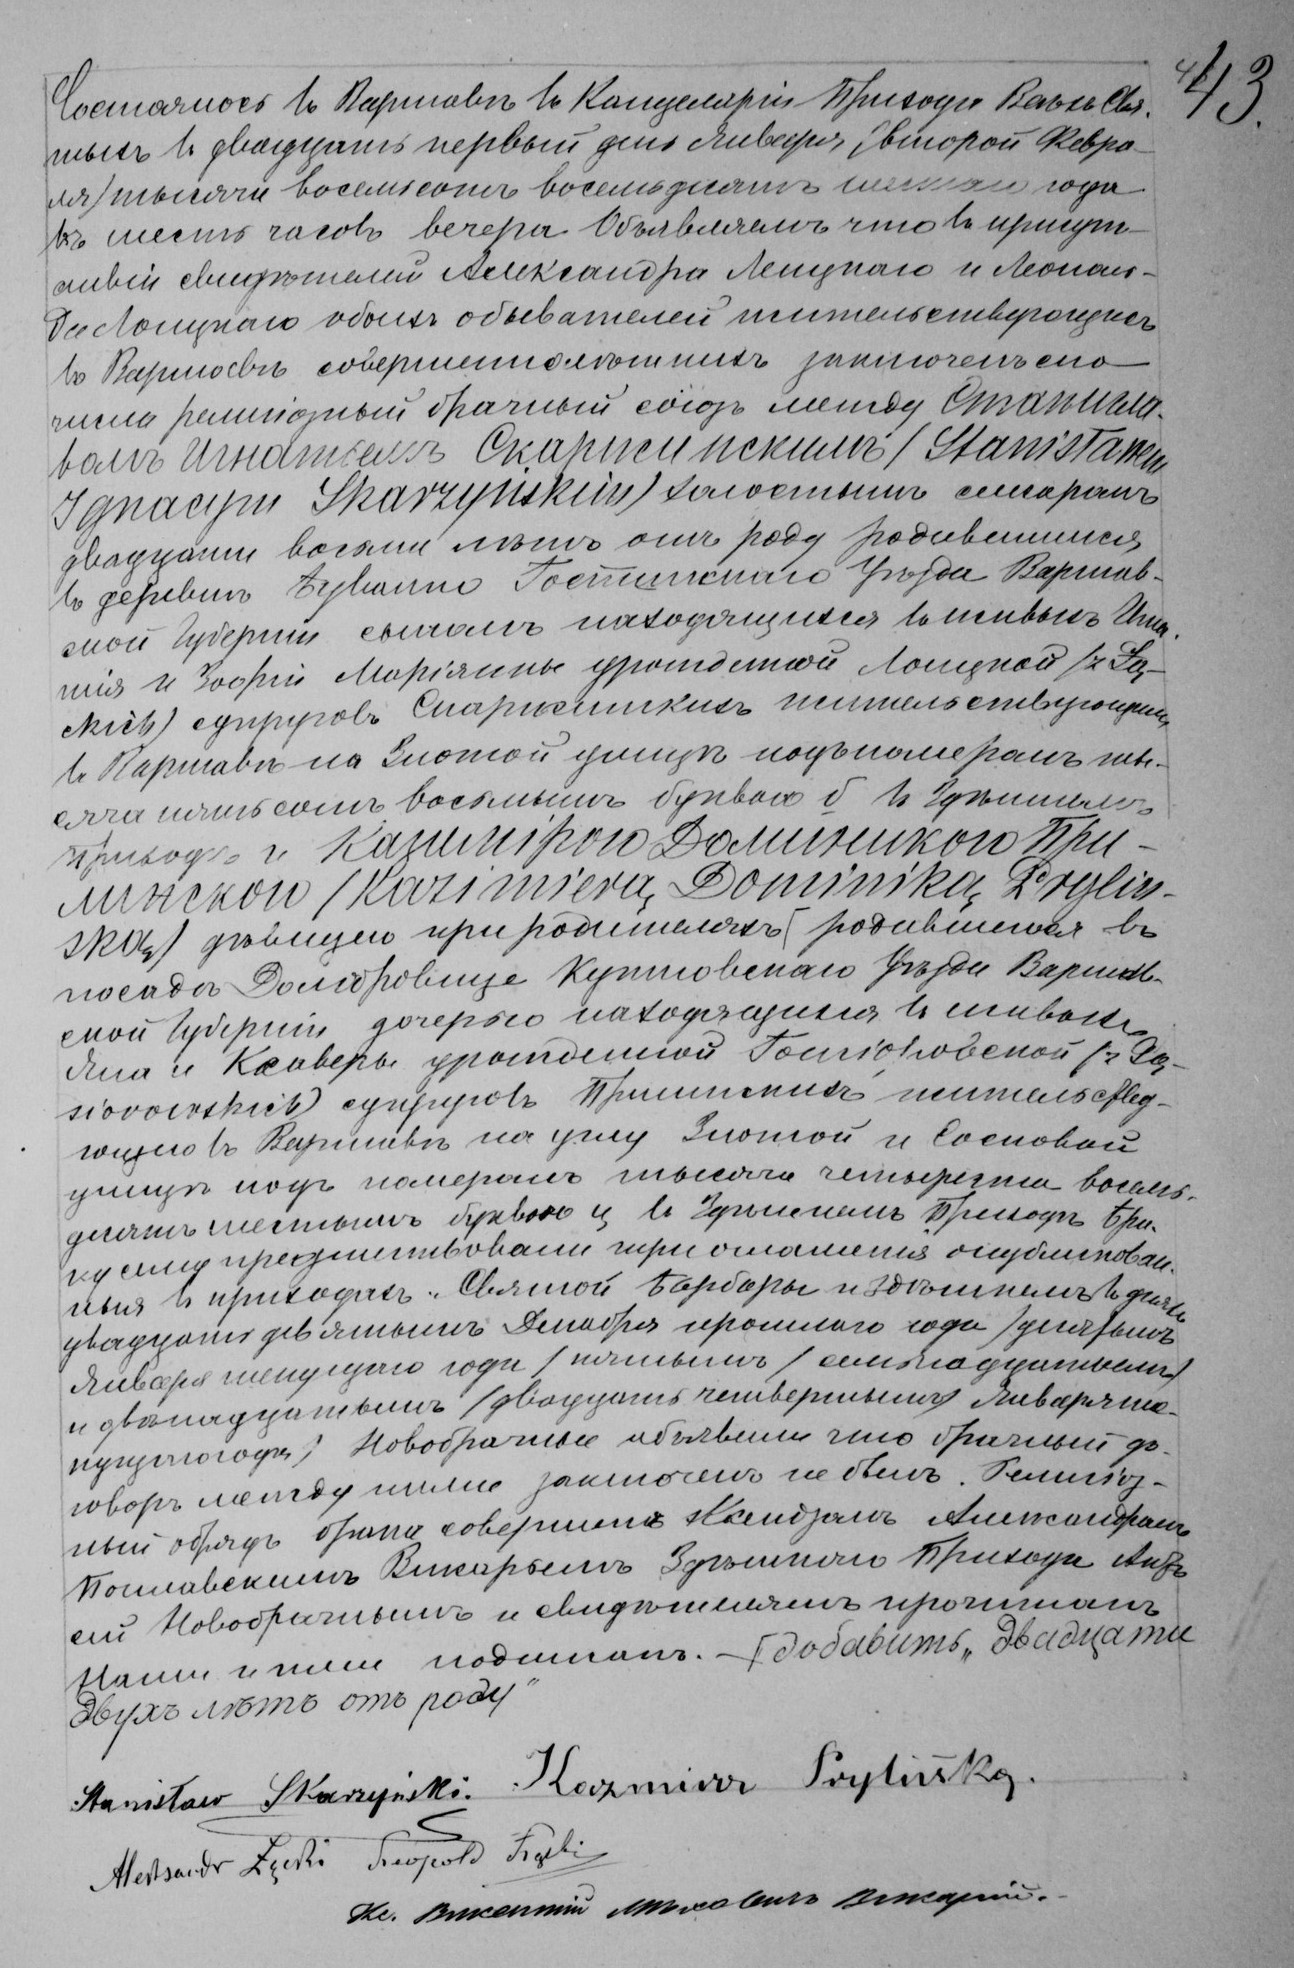 43.
Состоялось въ Варшавѣ въ Канцеляріи Прихода Всѣхъ Свя-
тыхъ въ двадцать первый день Января /второй Февра-
ля/ тысяча восемьсотъ восемьдесятъ года
въ шесть часовъ вечера. Объявляемъ что въ присут-
ствіи свидѣтелей Александра и Леополь-
да обоихъ обывателей жительствующихъ
въ Варшавѣ совершеннолѣтнихъ заключенъ сего
числа религіозный брачный союзъ между Станисла-
вомъ Игнатіемъ Скаржинскимъ /Stanisławem
Ignacym Skarzyńskim/ холостымъ слесаремъ
двадцати восьми лѣтъ отъ роду родившимся
въ деревнѣ Гостынскаго Уѣзда Варшав-
ской Губерніи сыномъ находящихся въ живыхъ Игна-
тія и Зофіи Маріянны урожденной Лонцкой /z Łą-
ckich/ супруговъ Скаржинскихъ жительствующимъ
въ Варшавѣ на Злотой улицѣ подъ номеромъ ты-
сяча пятьсотъ восьмымъ буквою б въ Здѣшнемъ
приходѣ и Казимірою Доминикою При-
линскою /Kazimierą Dominiką Pryliń-
ską/ дѣвицею при родителяхъ [ родившеюся въ
посадѣ Домбровице Кутновскаго Уѣзда Варшав-
ской Губерніи дочерью находящихся въ живыхъ
Яна и Ксаверы урожденной Гонсіоровской /z Gą-
siorowskich/ супруговъ Прилинскихъ жительству-
ющею въ Варшавѣ на углу Злотой и Сосновой
улицъ подъ номеромъ тысяча четыреста восемь-
десятъ шестымъ буквою ц въ Здѣшнемъ Приходѣ Бра-
ку сему предшествовали три оглашенія опубликован-
ныя въ приходахъ: Святой Барбары и здѣшнемъ въ дняхъ
двадцать девятымъ Декабря прошлаго года /десятымъ
Января текущаго года / пятымъ /семнадцатымъ/
и двѣнадцатымъ /двадцать четвертымъ/ Января те-
кущаго года/ Новобрачные объявили что брачный до-
говоръ между ними заключенъ не былъ. Религіоз-
ный обрядъ брака совершенъ Ксендзомъ Александромъ
Викаріемъ Здѣшняго Прихода Актъ
сей Новобрачнымъ и свидѣтелямъ прочитанъ
Нами и ними подписанъ. — [добавить „двадцати
двухъ лѣтъ отъ роду"
Stanisław Skarzyński. Kazmira Prylińska.
Aleksandr Łącki Leopold Łącki
Кс. Викентій Викарій.